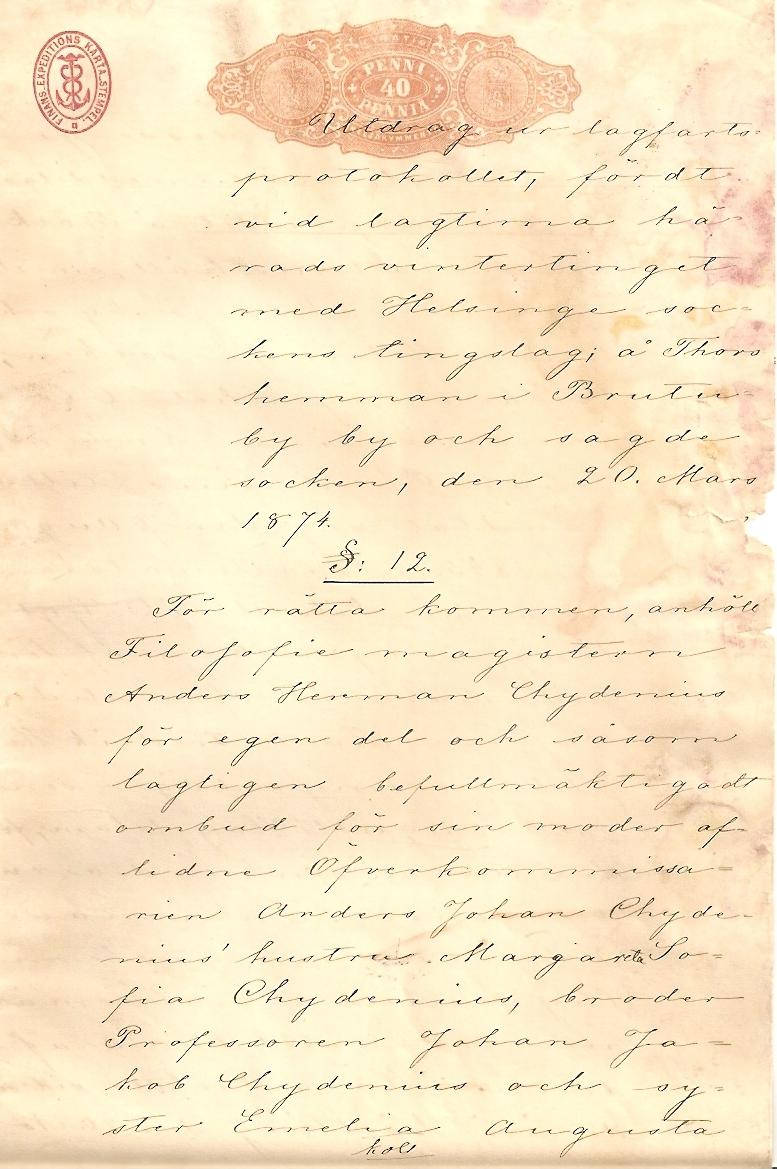 FINANS-EXPEDITIONS KARTA-STEMPEL.
PENNI
40
PENNIÄ
Utdrag ur lagfarts-
protokollet, fördt
vid lagtima hä-
rads vintertinget
med Helsinge soc-
kens tingslag; å Thors
hemman i Brutu-
by by och sagde
socken, den 20. Mars
1874.
§: 12.
För rätta kommen, anhöll
Filosofie magistern
Anders Herman Chydenius
för egen del och såsom
lagligen befullmäktigadt
ombud för sin moder af-
lidne Öfverkommissa-
rien Anders Johan Chyde-
nius' hustru Margareta So-
fia Chydenius, broder
Professoren Johan Ja-
kob Chydenius och sy-
ster Emelia Augusta